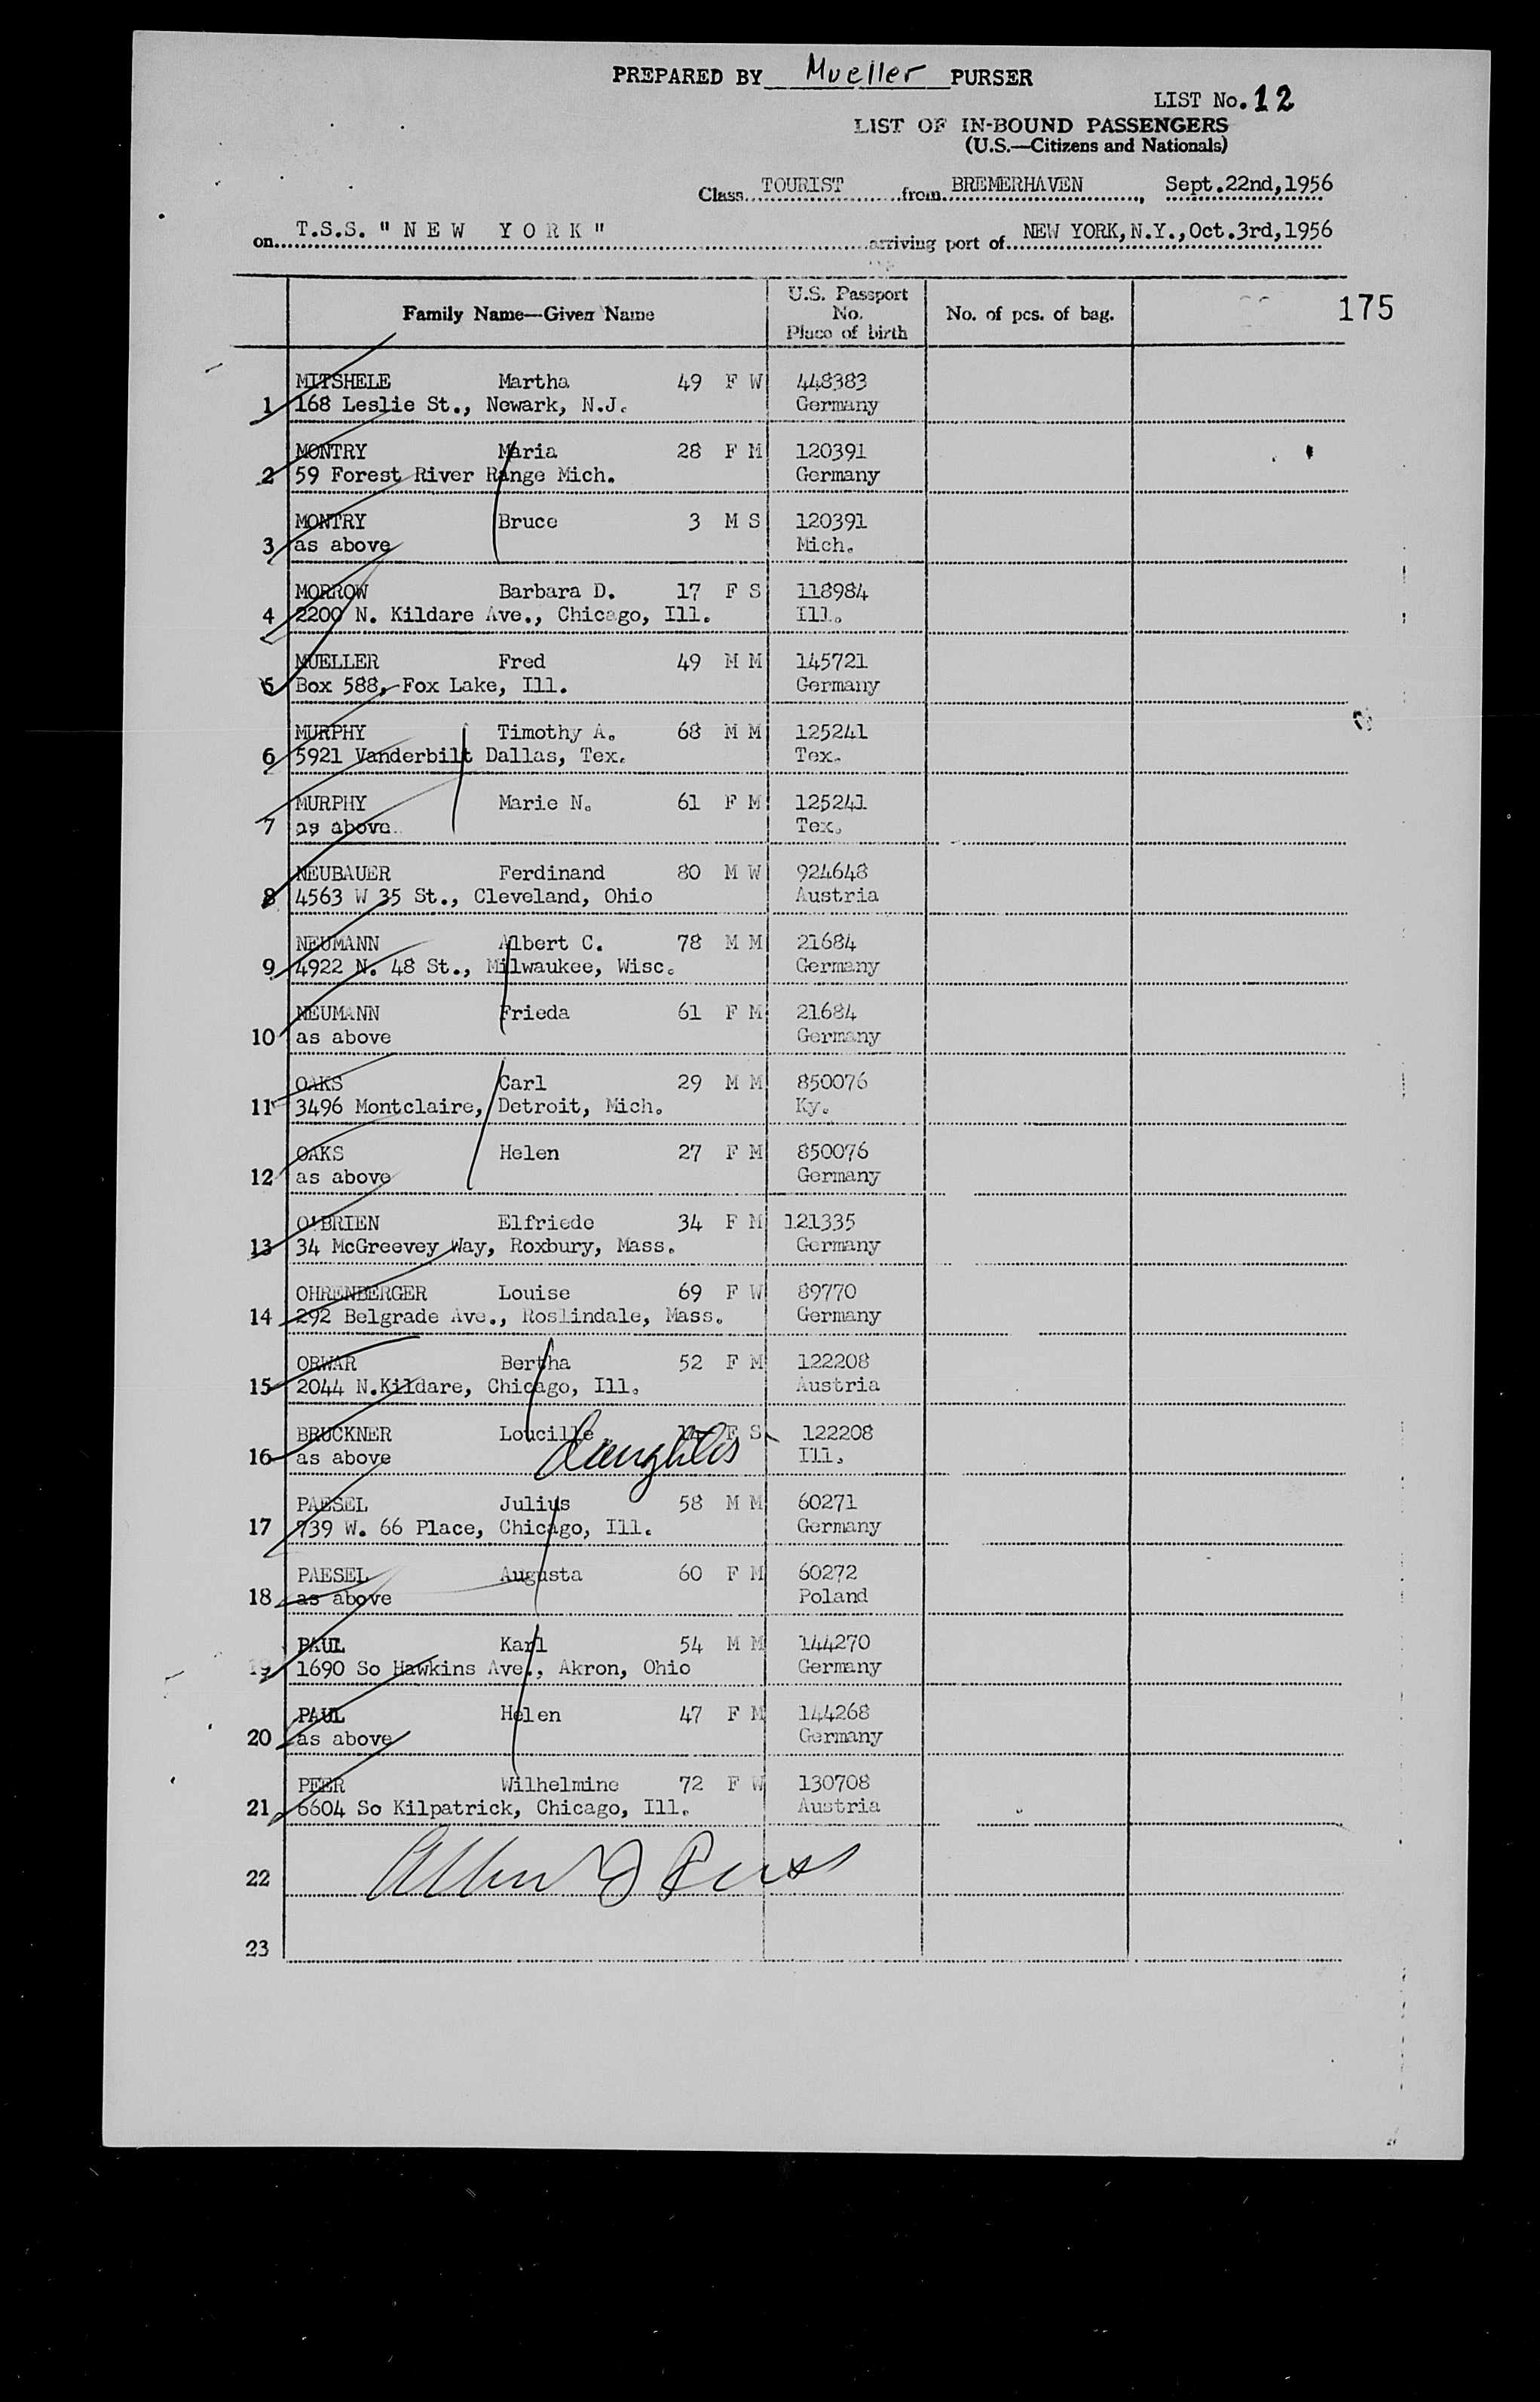 PREPARED BY Mueller PURSER
LIST No. 12
LIST OF IN-BOUND PASSENGERS
(U.S.—Citizens and Nationals)
Class TOURIST from BREMERHAVEN, Sept.22nd,1956
on T.S.S. " N E W Y O R K " arriving port of NEW YORK, N.Y., Oct.3rd,1956
Family Name—Given Name U.S. Passport No. Place of birth No. of pcs. of bag. 175
MITSHELE Martha 49 F W 448383
1 168 Leslie St., Newark, N.J. Germany
MONTRY Maria 28 F M 120391
2 59 Forest River Range Mich. Germany
MONTRY Bruce 3 M S 120391
3 as above Mich.
MORROW Barbara D. 17 F S 118984
4 2200 N. Kildare Ave., Chicago, Ill. Ill.
MUELLER Fred 49 M M 145721
5 Box 588, Fox Lake, Ill. Germany
MURPHY Timothy A. 68 M M 125241
6 5921 Vanderbilt Dallas, Tex. Tex.
MURPHY Marie N. 61 F M 125241
7 as above Tex.
NEUBAUER Ferdinand 80 M W 924648
8 4563 W 35 St., Cleveland, Ohio Austria
NEUMANN Albert C. 78 M M 21684
9 4922 N. 48 St., Milwaukee, Wisc. Germany
NEUMANN Frieda 61 F M 21684
10 as above Germany
OAKS Carl 29 M M 850076
11 3496 Montclaire, Detroit, Mich. Ky.
OAKS Helen 27 F M 850076
12 as above Germany
O'BRIEN Elfriede 34 F M 121335
13 34 McGreevey Way, Roxbury, Mass. Germany
OHRENBERGER Louise 69 F W 89770
14 292 Belgrade Ave., Roslindale, Mass. Germany
ORWAR Bertha 52 F M 122208
15 2044 N.Kildare, Chicago, Ill. Austria
BRUCKNER Loucille F S 122208
16 as above daughter Ill.
PAESEL Julius 58 M M 60271
17 739 W. 66 Place, Chicago, Ill. Germany
PAESEL Augusta 60 F M 60272
18 as above Poland
PAUL Karl 54 M M 144270
19 1690 So Hawkins Ave., Akron, Ohio Germany
PAUL Helen 47 F M 144268
20 as above Germany
PEER Wilhelmine 72 F W 130708
21 6604 So Kilpatrick, Chicago, Ill. Austria
22
23